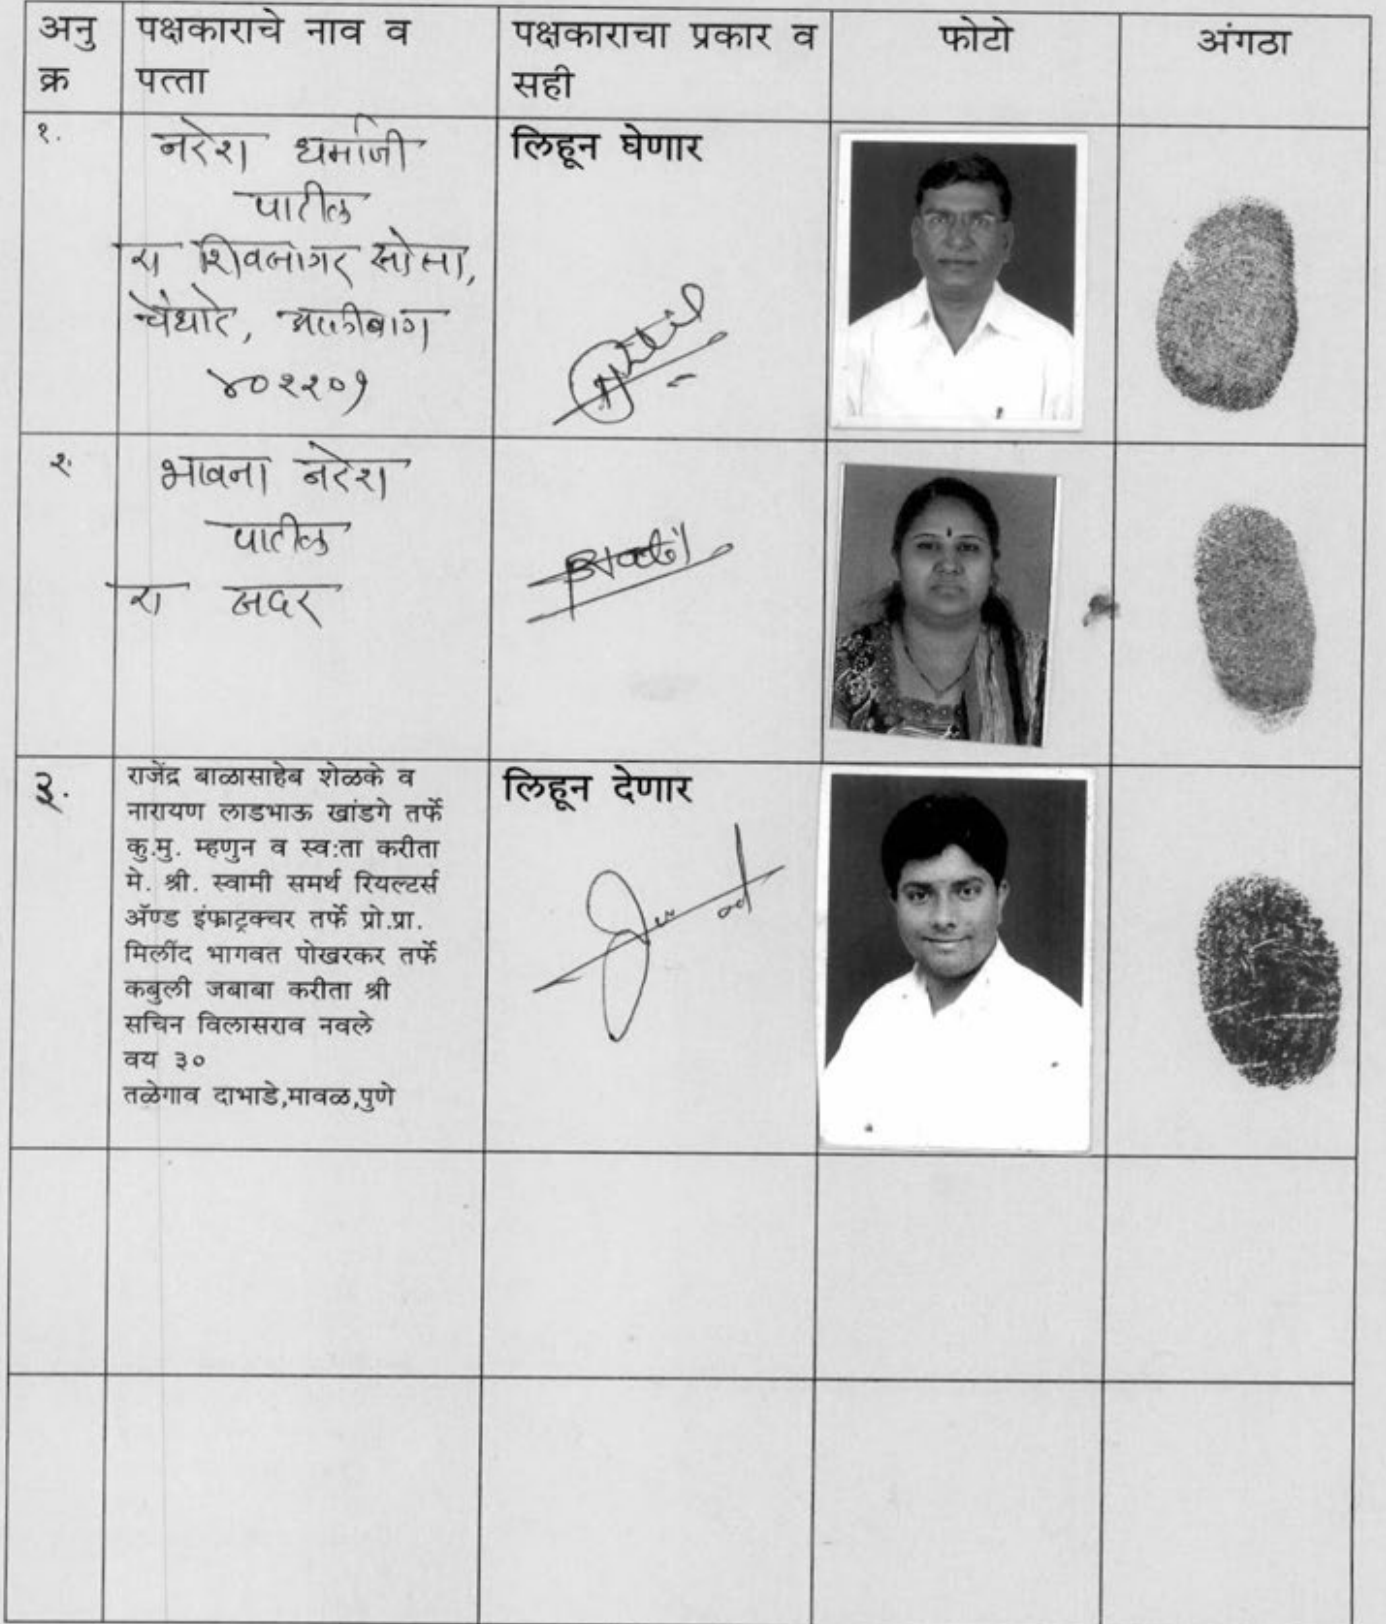 अनु क्र
पक्षकाराचे नाव व पत्ता
पक्षकाराचा प्रकार व सही
फोटो
अंगठा
१.
नरेश धर्माजी
पाटील
रा शिवसागर सोसा,
चेंढरे, अलीबाग
४०२२०१
लिहून घेणार
२.
भावना नरेश
पाटील
रा सदर
३.
राजेंद्र बाळासाहेब शेळके व
नारायण लाडभाऊ खांडगे तर्फे
कु.मु. म्हणुन व स्व:ता करीता
मे. श्री. स्वामी समर्थ रियल्टर्स
ॲण्ड इंफ्राट्रक्चर तर्फे प्रो.प्रा.
मिलींद भागवत पोखरकर तर्फे
कबुली जबाबा करीता श्री
सचिन विलासराव नवले
वय ३०
तळेगाव दाभाडे,मावळ,पुणे
लिहून देणार